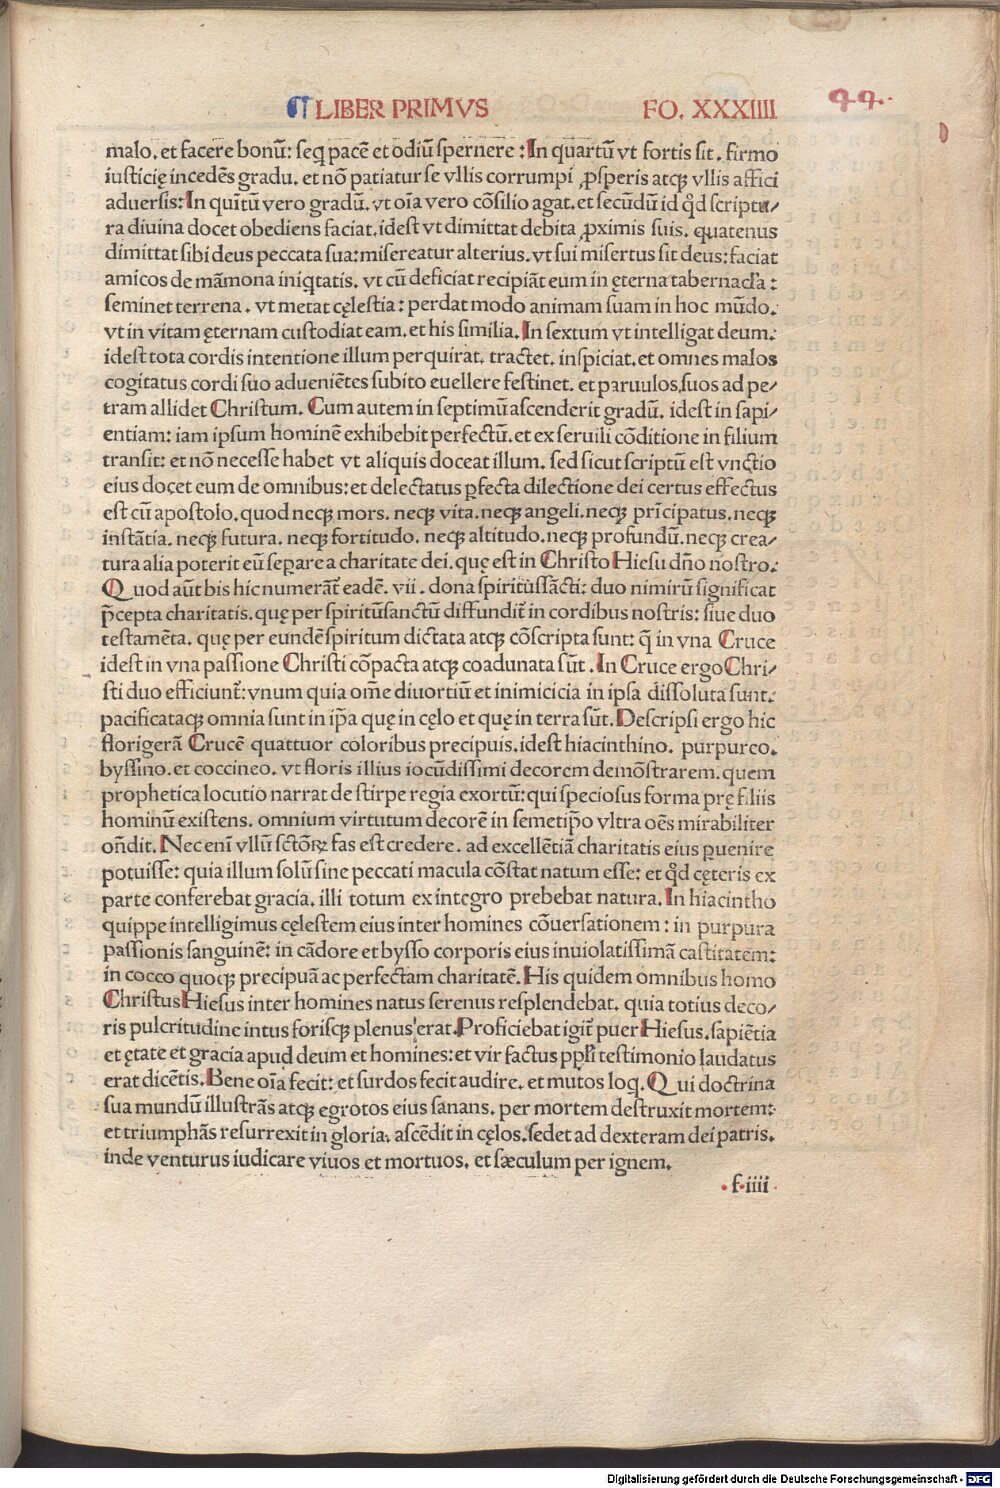 ¶ LIBER PRIMVS FO. XXXIIII 44.
malo. et facere bonū: seq̄ pacē et odiū spernere: In quartū vt fortis sit. firmo
iusticię incedēs gradu. et nō patiatur se vllis corrumpi ꝓsperis atqꝫ vllis affici
aduersis: In quītū vero gradū. vt oīa vero cōsilio agat. et secūdū id qd̄ scriptu⸗
ra diuina docet obediens faciat. idest vt dimittat debita ꝓximis suis. quatenus
dimittat sibi deus peccata sua: misereatur alterius. vt sui misertus sit deus: faciat
amicos de māmona iniq̄tatis. vt cū deficiat recipiāt eum in ęterna tabernacła:
seminet terrena. vt metat cęlestia: perdat modo animam suam in hoc mūdo.
vt in vitam ęternam custodiat eam. et his similia. In sextum vt intelligat deum:
idest tota cordis intentione illum perquirat. tractet. inspiciat. et omnes malos
cogitatus cordi suo adueniētes subito euellere festinet. et paruulos suos ad pe⸗
tram allidet Christum. Cum autem in septimū ascenderit gradū. idest in sapi⸗
entiam: iam ipsum hominē exhibebit perfectū. et ex seruili cōditione in filium
transit: et nō necesse habet vt aliquis doceat illum. sed sicut scriptū est vnctio
eius docet eum de omnibus: et delectatus ꝑfecta dilectione dei certus effectus
est cū apostolo. quod neqꝫ mors. neqꝫ vita. neqꝫ angeli. neqꝫ prīcipatus. neqꝫ
instātia. neqꝫ futura. neqꝫ fortitudo. neqꝫ altitudo. neqꝫ profundū. neqꝫ crea⸗
tura alia poterit eū seꝑare a charitate dei. quę est in Christo Hiesu dn̄o nostro:
Quod aūt bis hic numerāt̄ eadē. vii. dona spiritus sācti: duo nimirū significat
p̄cepta charitatis. quę per spiritūsanctū diffundit̄ in cordibus nostris: siue duo
testamēta. quę per eundē spiritum dictata atqꝫ cōscripta sunt: q̄ in vna Cruce
idest in vna passione Christi cōpacta atqꝫ coadunata sūt. In Cruce ergo Chri⸗
sti duo efficiunt̄: vnum quia om̄e diuortiū et inimicicia in ipsa dissoluta sunt:
pacificataqꝫ omnia sunt in ip̄a quę in cęlo et quę in terra sūt. Descripsi ergo hic
florigerā Crucē quattuor coloribus precipuis. idest hiacinthino. purpureo.
byssino. et coccineo. vt floris illius iocūdissimi decorem demōstrarem. quem
prophetica locutio narrat de stirpe regia exortū: qui speciosus forma prę filiis
hominū existens. omnium virtutum decorē in semetip̄o vltra oēs mirabiliter
on̄dit. Nec enī vllū sctōꝝ fas est credere. ad excellētiā charitatis eius ꝑuenire
potuisse: quia illum solū sine peccati macula cōstat natum esse: et qd̄ cęteris ex
parte conferebat gracia. illi totum ex integro prebebat natura. In hiacintho
quippe intelligimus cęlestem eius inter homines cōuersationem: in purpura
passionis sanguinē: in cādore et bysso corporis eius inuiolatissimā castitatem:
in cocco quoqꝫ precipuā ac perfectam charitatē. His quidem omnibus homo
Christus Hiesus inter homines natus serenus resplendebat. quia totius deco⸗
ris pulcritudine intus forisqꝫ plenus erat. Proficiebat igit̄ puer Hiesus. sapiētia
et ętate et gracia apud deum et homines: et vir factus ppłi testimonio laudatus
erat dicētis. Bene oīa fecit: et surdos fecit audire. et mutos loq̄. Qui doctrina
sua mundū illustrās atqꝫ egrotos eius sanans. per mortem destruxit mortem:
et triumphās resurrexit in gloria. ascēdit in cęlos. sedet ad dexteram dei patris.
inde venturus iudicare viuos et mortuos. et sæculum per ignem.
. f. iiii
Digitalisierung gefördert durch die Deutsche Forschungsgemeinschaft - DFG